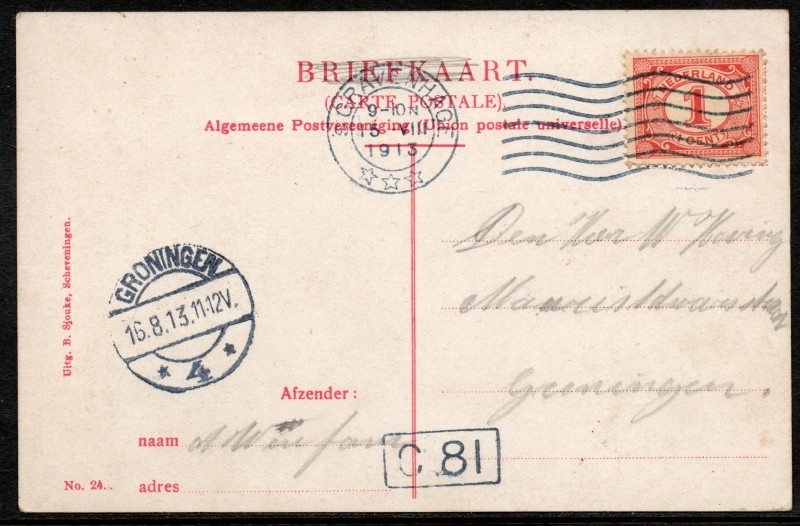 BRIEFKAART.
(CARTE POSTALE)
Algemeene Postvereeniging (Union postale universelle)
'SGRAVENHAGE
9-10N
15 VIII
1913
NEDERLAND
1
CENT
Uitg. B. Sjouke, Scheveningen.
GRONINGEN
16.8.13.11-12V.
4
Den Heer W
Groningen.
Afzender:
naam
C.81
No. 24.
adres